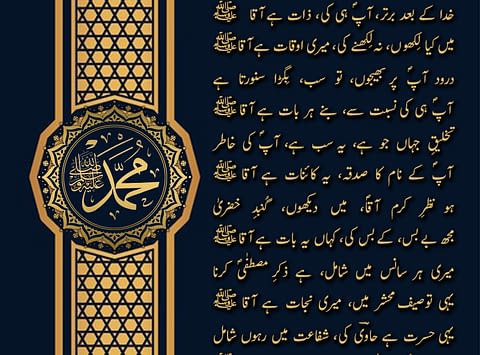 خدا کے بعد برتر، آپؐ ہی کی، ذات ہے آقا ﷺ
میں کیا لِکھوں، نہ لِکھنے کی، میری اوقات ہے آقا ﷺ
درود آپؐ پر بھیجوں، تو سب، بِگڑا سنورتا ہے
آپؐ ہی کی نسبت سے، بنے ہر بات ہے آقا ﷺ
تخلیقِ جہاں جو ہے، یہ سب ہے، آپؐ کی خاطر
آپؐ کے نام کا صدقہ، یہ کائنات ہے آقا ﷺ
ہو نظرِ کرم آقاؐ، میں دیکھوں، گُنبدِ خضریٰ
مجھ بے بس، کے بس کی، کہاں یہ بات ہے آقا ﷺ
میری ہر سانس میں شامل، ہے ذکرِ مصطفٰیؐ کرنا
یہی توصیف محشر میں، میری نجات ہے آقا ﷺ
یہی حسرت ہے حاویؔ کی، شفاعت میں رہوں شامل
محمد ﷺ